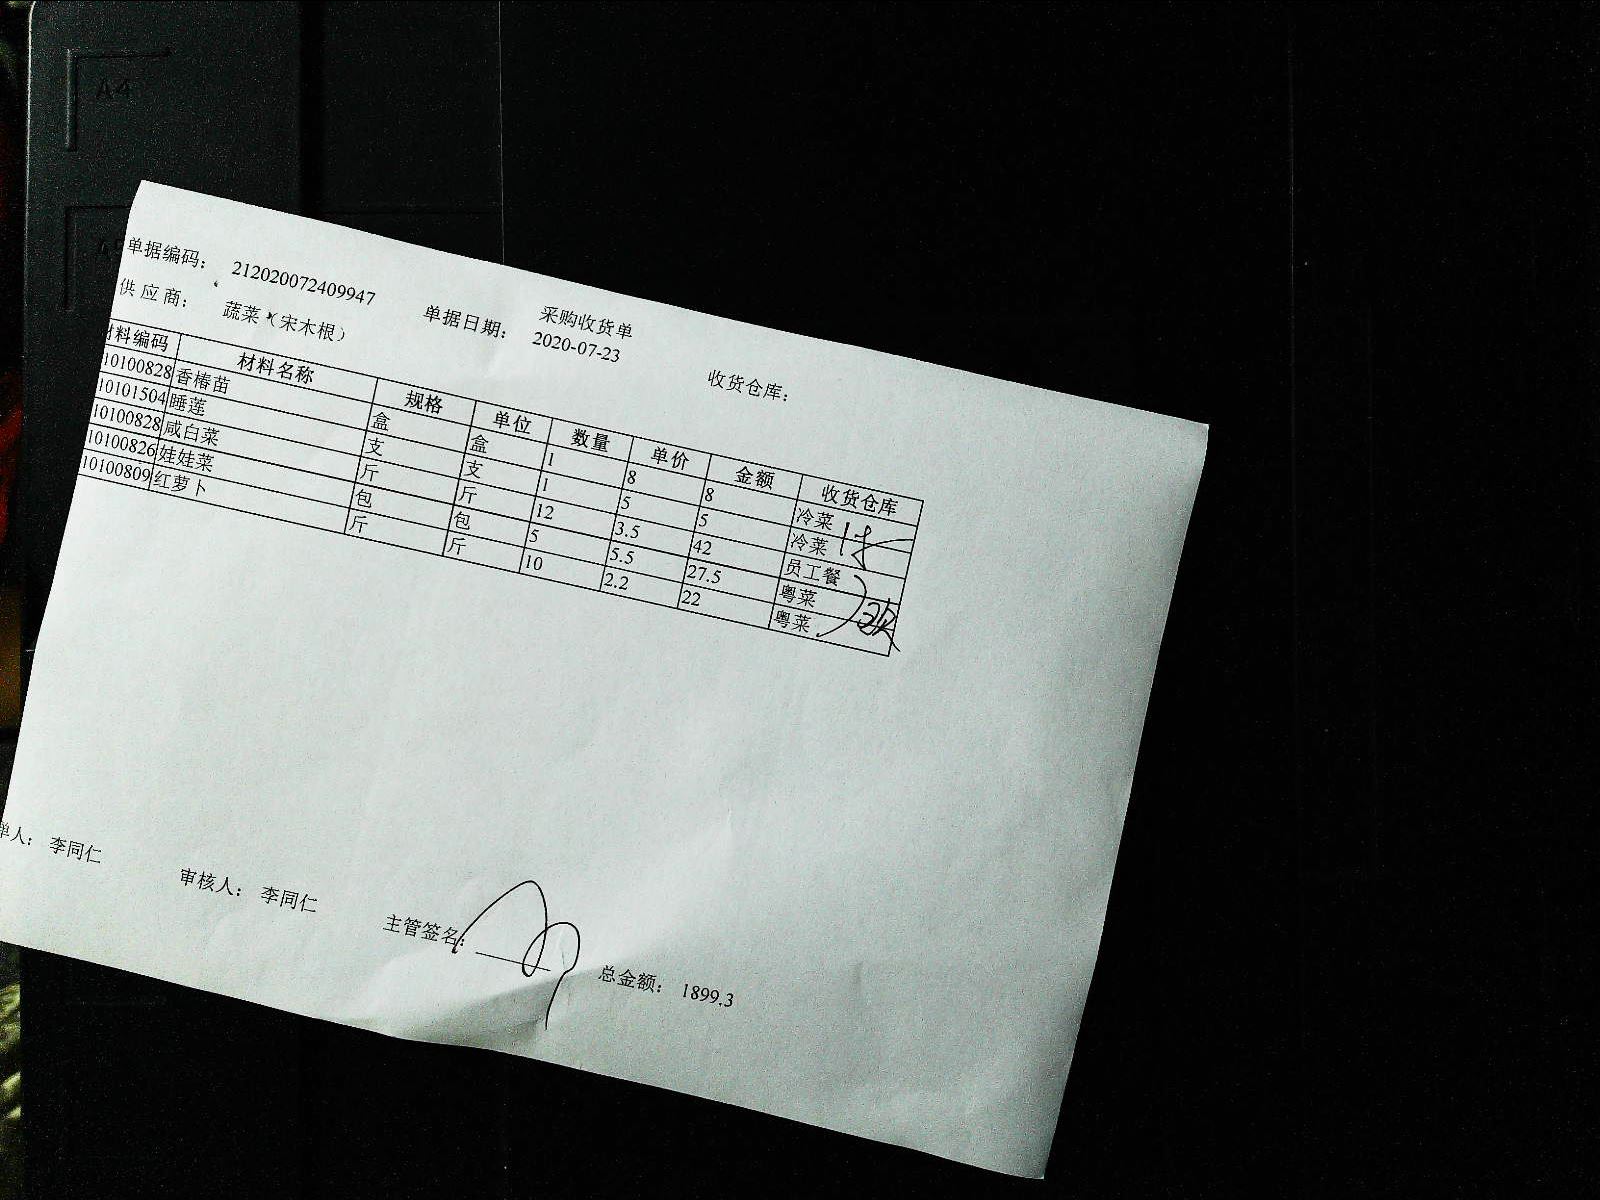 A4
采购收货单
单据编码： 212020072409947 单据日期： 2020-07-23 收货仓库：
供应商： 蔬菜（宋木根）
材料编码 材料名称 规格 单位 数量 单价 金额 收货仓库
10100828 香椿苗 盒 盒 1 8 8 冷菜
10101504 睡莲 支 支 1 5 5 冷菜
10100828 咸白菜 斤 斤 12 3.5 42 员工餐
10100826 娃娃菜 包 包 5 5.5 27.5 粤菜
10100809 红萝卜 斤 斤 10 2.2 22 粤菜
单人： 李同仁 审核人： 李同仁 主管签名： 总金额： 1899.3